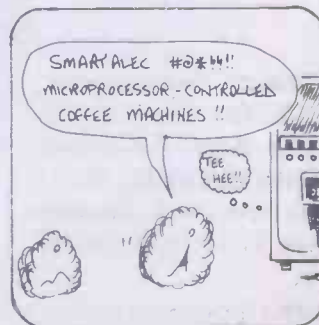 SMARTALEC #@*!!!!
MICROPROCESSOR-CONTROLLED
COFFEE MACHINES !!
TEE
HEE!!